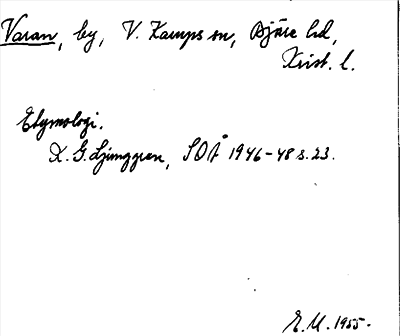 Varan, by, V. Karups sn, Bjäre hd,
Krist. l.
Etymologi.
K. G. Ljunggren, SOÅ 1946-48 s. 23.
E. M. 1955.